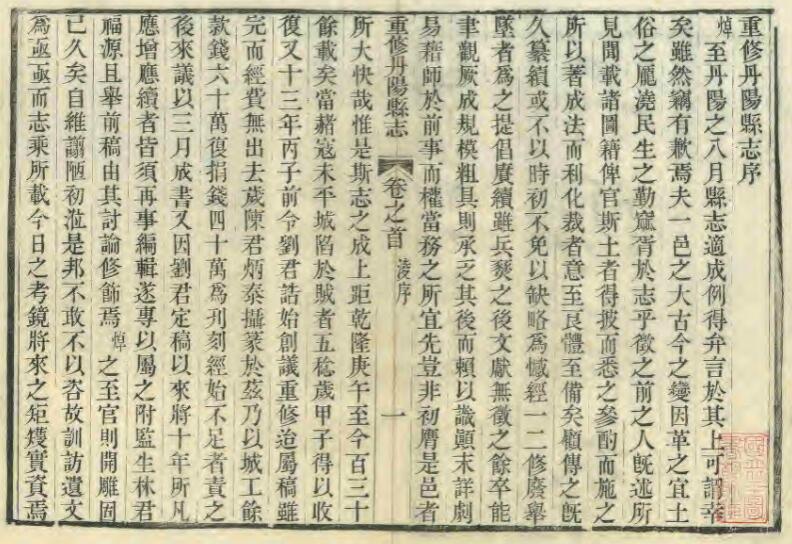 重修丹陽縣志序
焯至丹陽之八月縣志適成例得弁言於其上可謂幸
矣雖然竊有歉焉夫一邑之大古今之變因革之宜土
俗之龐澆民生之勤窳胥於志乎徵之前之人既述所
見聞載諸圖籍俾官斯土者得披而悉之參酌而施之
所以著成法而利化裁者意至良體至備矣顧傳之既
久纂續或不以時初不免以缺略為憾經一二修廢舉
墜者為之提倡賡續雖兵燹之後文獻無徵之餘卒能
聿觀厥成規模粗具則承乏其後而賴以識顛末詳劇
易藉師於前事而權當務之所宜先豈非初膺是邑者
重修丹陽縣志 卷之首 凌序 一
所大快哉惟是斯志之成上距乾隆庚午至今百三十
餘載矣當赭寇未平城陷於賊者五稔歲甲子得以收
復又十三年丙子前令劉君誥始創議重修迨屬稿雖
完而經費無出去歲陳君炳泰攝篆於茲乃以城工餘
款錢六十萬復捐錢四十萬為刋刻經始不足者責之
後來議以三月成書又因劉君定稿以來將十年所凡
應增應續者皆須再事編輯遂專以屬之附監生林君
福源且舉前稿由其討論修飾焉焯之至官則開雕固
已久矣自維謭陋初涖是邦不敢不以咨故訓訪遺文
為亟亟而志乘所載今日之考鏡將來之矩矱實資焉